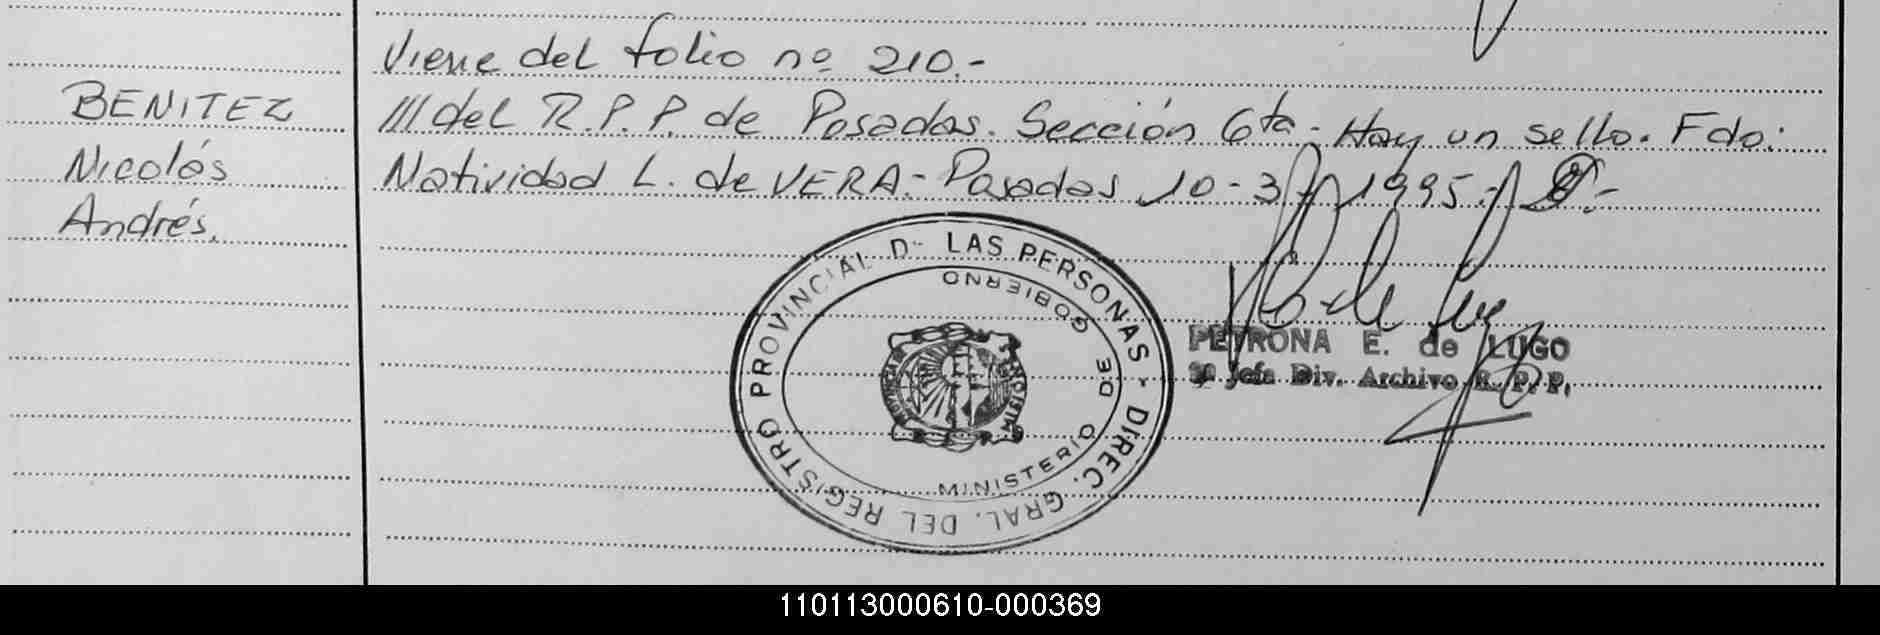 Viene del folio nº 210.-
BENITEZ
Nicolás
Andrés.
///del R.P.P. de Posadas. Sección 6ta.- Hay un sello. Fdo:
Natividad L. de VERA.- Posadas 10-3-1995.-
DIREC. GRAL. DEL REGISTRO PROVINCIAL D- LAS PERSONAS -
MINISTERIO DE GOBIERNO
PROVINCIA
PETRONA E. de LUGO
Jefa Div. Archivo R. P. P.
110113000610-000369